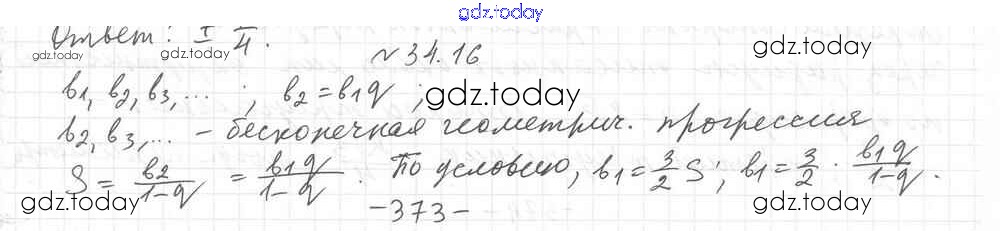 gdz.today
Ответ: ± π/4.
gdz.today
gdz.today
№ 34.16
b₁, b₂, b₃, ... ; b₂ = b₁q ;
gdz.today
b₂, b₃, ... – бесконечная геометрич. прогрессия
S = b₂/(1-q) = b₁q/(1-q). По условию, b₁ = 3/2 S; b₁ = 3/2 · b₁q/(1-q).
gdz.today
-373-
gdz.today
gdz.today